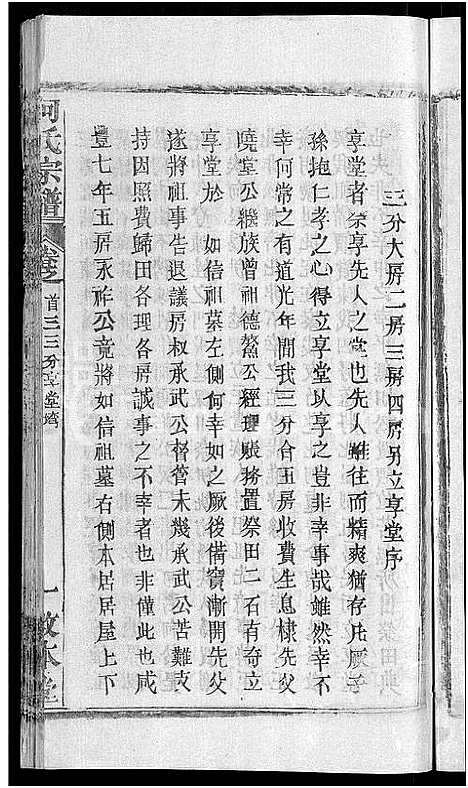 三分大房二房三房四房另立享堂序
享堂者祭享先人之堂也先人雖往而精爽猶存凡厥子
孫抱仁孝之心得立享堂以享之豈非幸事哉雖然幸不
幸何常之有道光年間我三分合五房收費生息棣先父
曉堂公緱族曾祖德鰲公經理賬務置祭田二石有奇立
享堂於 如信祖墓左側何幸如之厥後備竇漸開先父
遂將祖事告退議房叔承武公督管未幾承武公苦難支
持因照費歸田各理各房誠事之不幸者也非僅此也咸
豐七年五房永祚公竟將如信祖墓右側本居居屋上下
何氏宗譜
卷之首三 三分享堂序
一 敦本堂